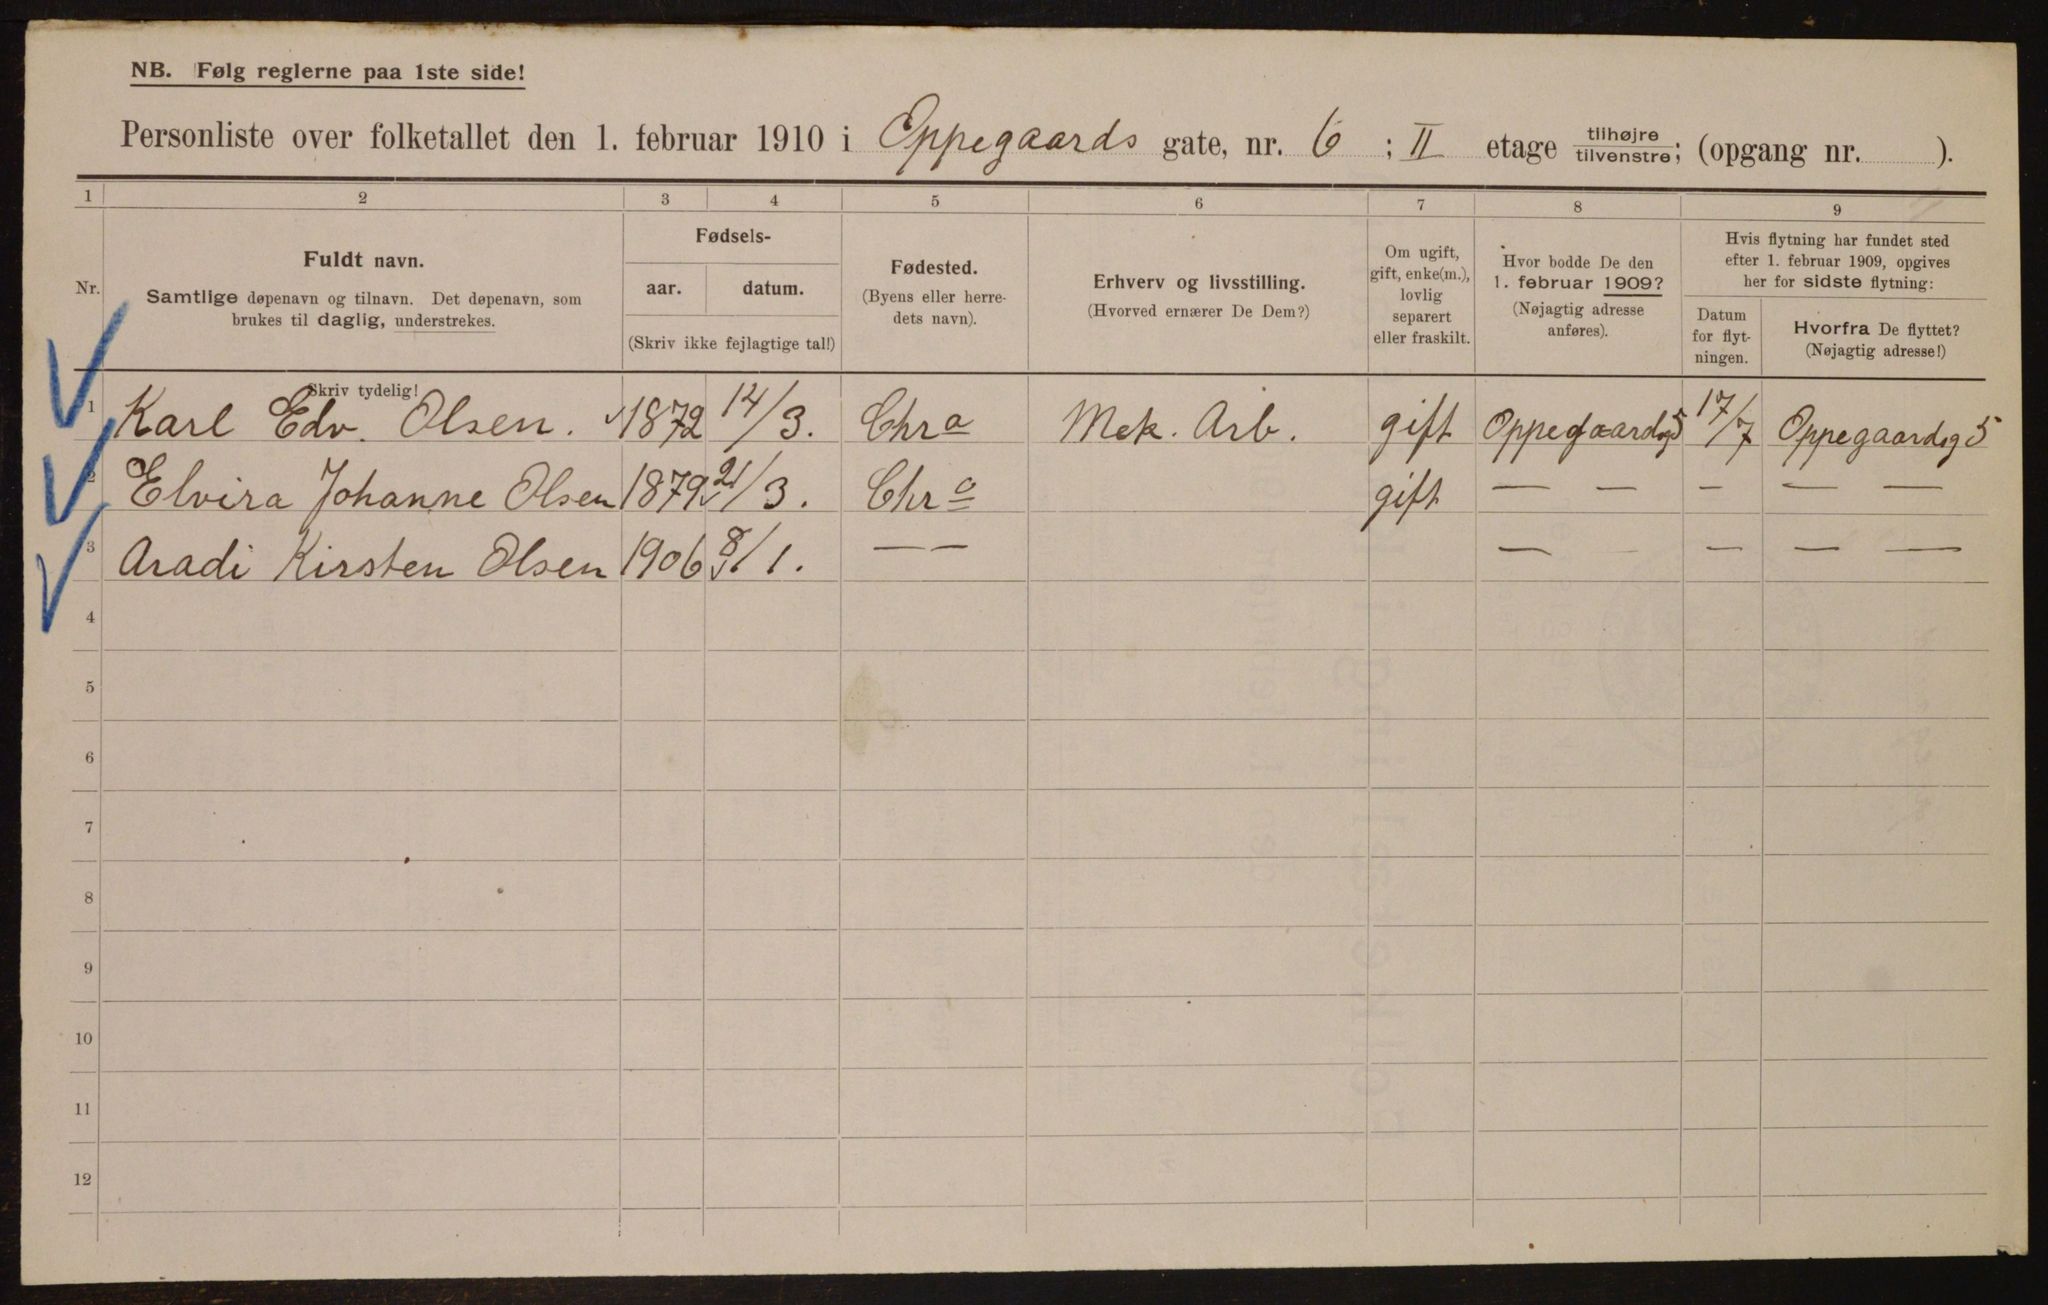 NB. Følg reglerne paa 1ste side!
Personliste over folketallet den 1. februar 1910 i Oppegaards gate, nr. 6 ; II etage tilhøjre/tilvenstre; (opgang nr. ).
1 2 3 4 5 6 7 8 9
Nr.
Fuldt navn.
Samtlige døpenavn og tilnavn. Det døpenavn, som
brukes til daglig, understrekes.
Skriv tydelig!
Fødsels-
aar. datum.
(Skriv ikke fejlagtige tal!)
Fødested.
(Byens eller herre-
dets navn).
Erhverv og livsstilling.
(Hvorved ernærer De Dem?)
Om ugift,
gift, enke(m.),
lovlig
separert
eller fraskilt.
Hvor bodde De den
1. februar 1909?
(Nøjagtig adresse
anføres).
Hvis flytning har fundet sted
efter 1. februar 1909, opgives
her for sidste flytning:
Datum
for flyt-
ningen.
Hvorfra De flyttet?
(Nøjagtig adresse!)
1 Karl Edv. Olsen. 1872 14/3. Chra Mek. Arb. gift Oppegaardsg 5 17/7 Oppegaardsg 5
2 Elvira Johanne Olsen 1879 21/3. Chra gift — — — — —
3 Aradi Kirsten Olsen 1906 8/1. — — — — — — —
4
5
6
7
8
9
10
11
12